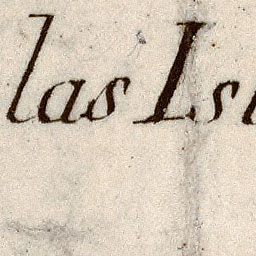 las Isl